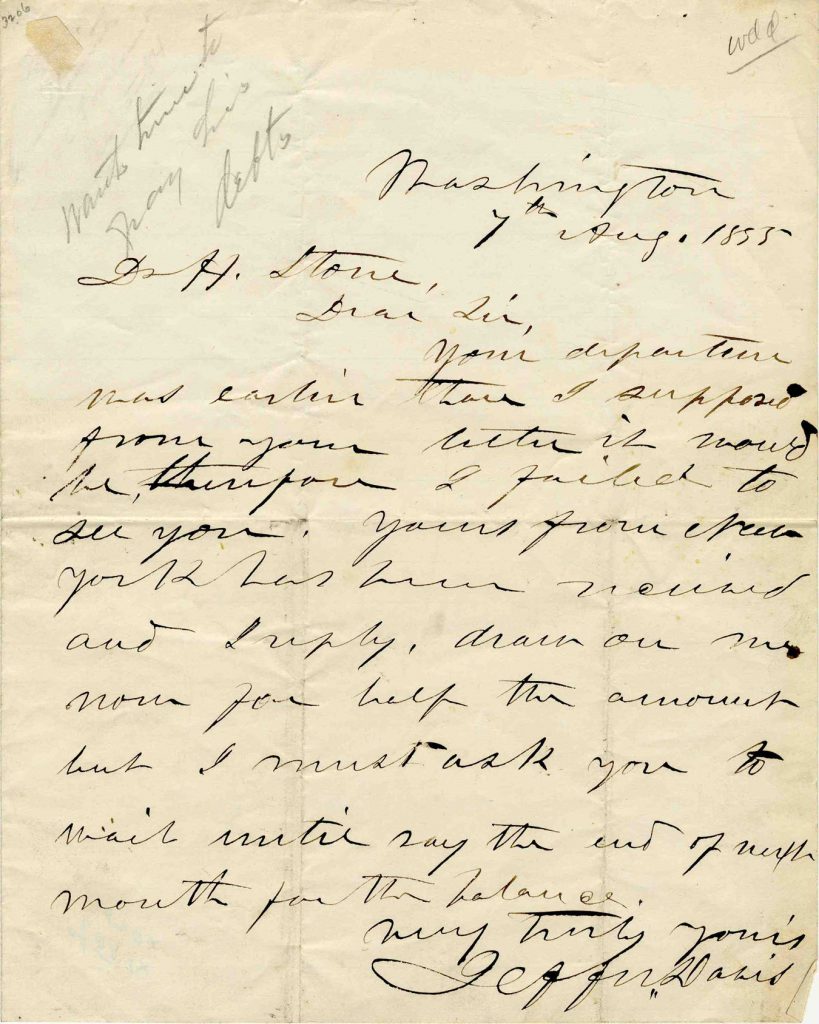 3206
wdd
wants time to
pay his
debts
Washington
7th Aug. 1855
Dr H. Stone,
Dear Sir,
Your departure
was earlier than I supposed
from your letter it would
be, therefore I failed to
see you. Yours from New
York has been received
and I reply, draw on me
now for half the amount
but I must ask you to
wait until say the end of next
month for the balance.
Very truly yours
Jeffn Davis